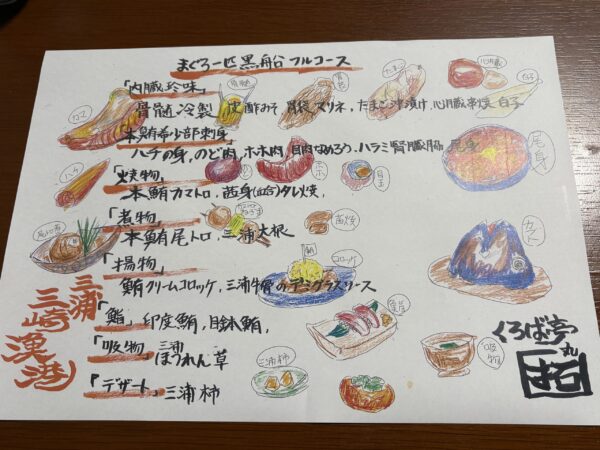 まぐろ一匹黒船 フルコース
「内臓珍味」
骨髄冷製、皮酢みそ、胃袋スリネ、たまご沖漬け、心臓串焼、白子
「本鮪希少部刺身」
ハチの身、のど肉、ホホ肉、目肉なめろう、ハラミ腎臓腸、尾身
「焼物」
本鮪カマトロ、茜身(血合)タレ焼、
「煮物」
本鮪尾トロ、三浦大根
「揚物」
鮪クリームコロッケ、三浦牛骨のデミグラスソース
「鮨」印度鮪、目鉢鮪、
「吸物」三浦ほうれん草
「デザート」三浦柿
三浦
三崎
漁港
くろば亭
カマ
骨髄
胃袋
たまご
心臓
白子
ハチ
ホホ
目玉
尾身
茜焼
カブト
コロッケ
三浦柿
吸物